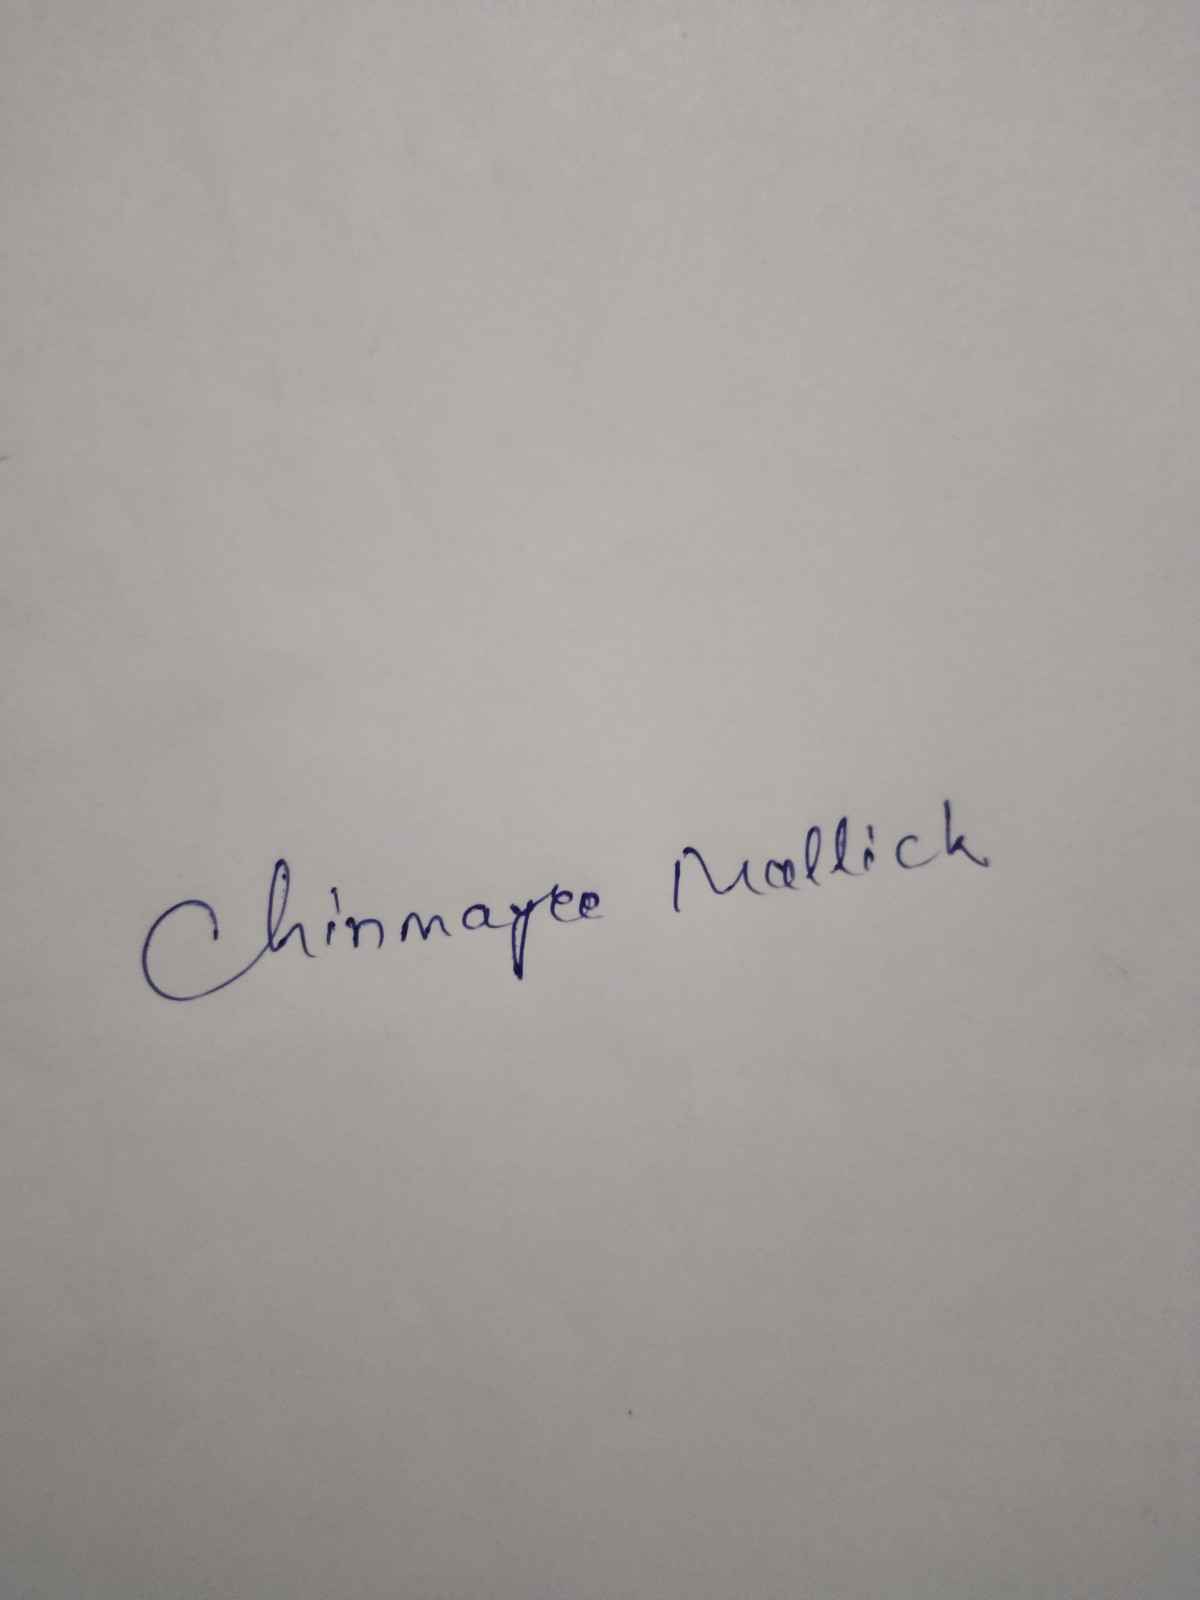 Chinmayee Mallick